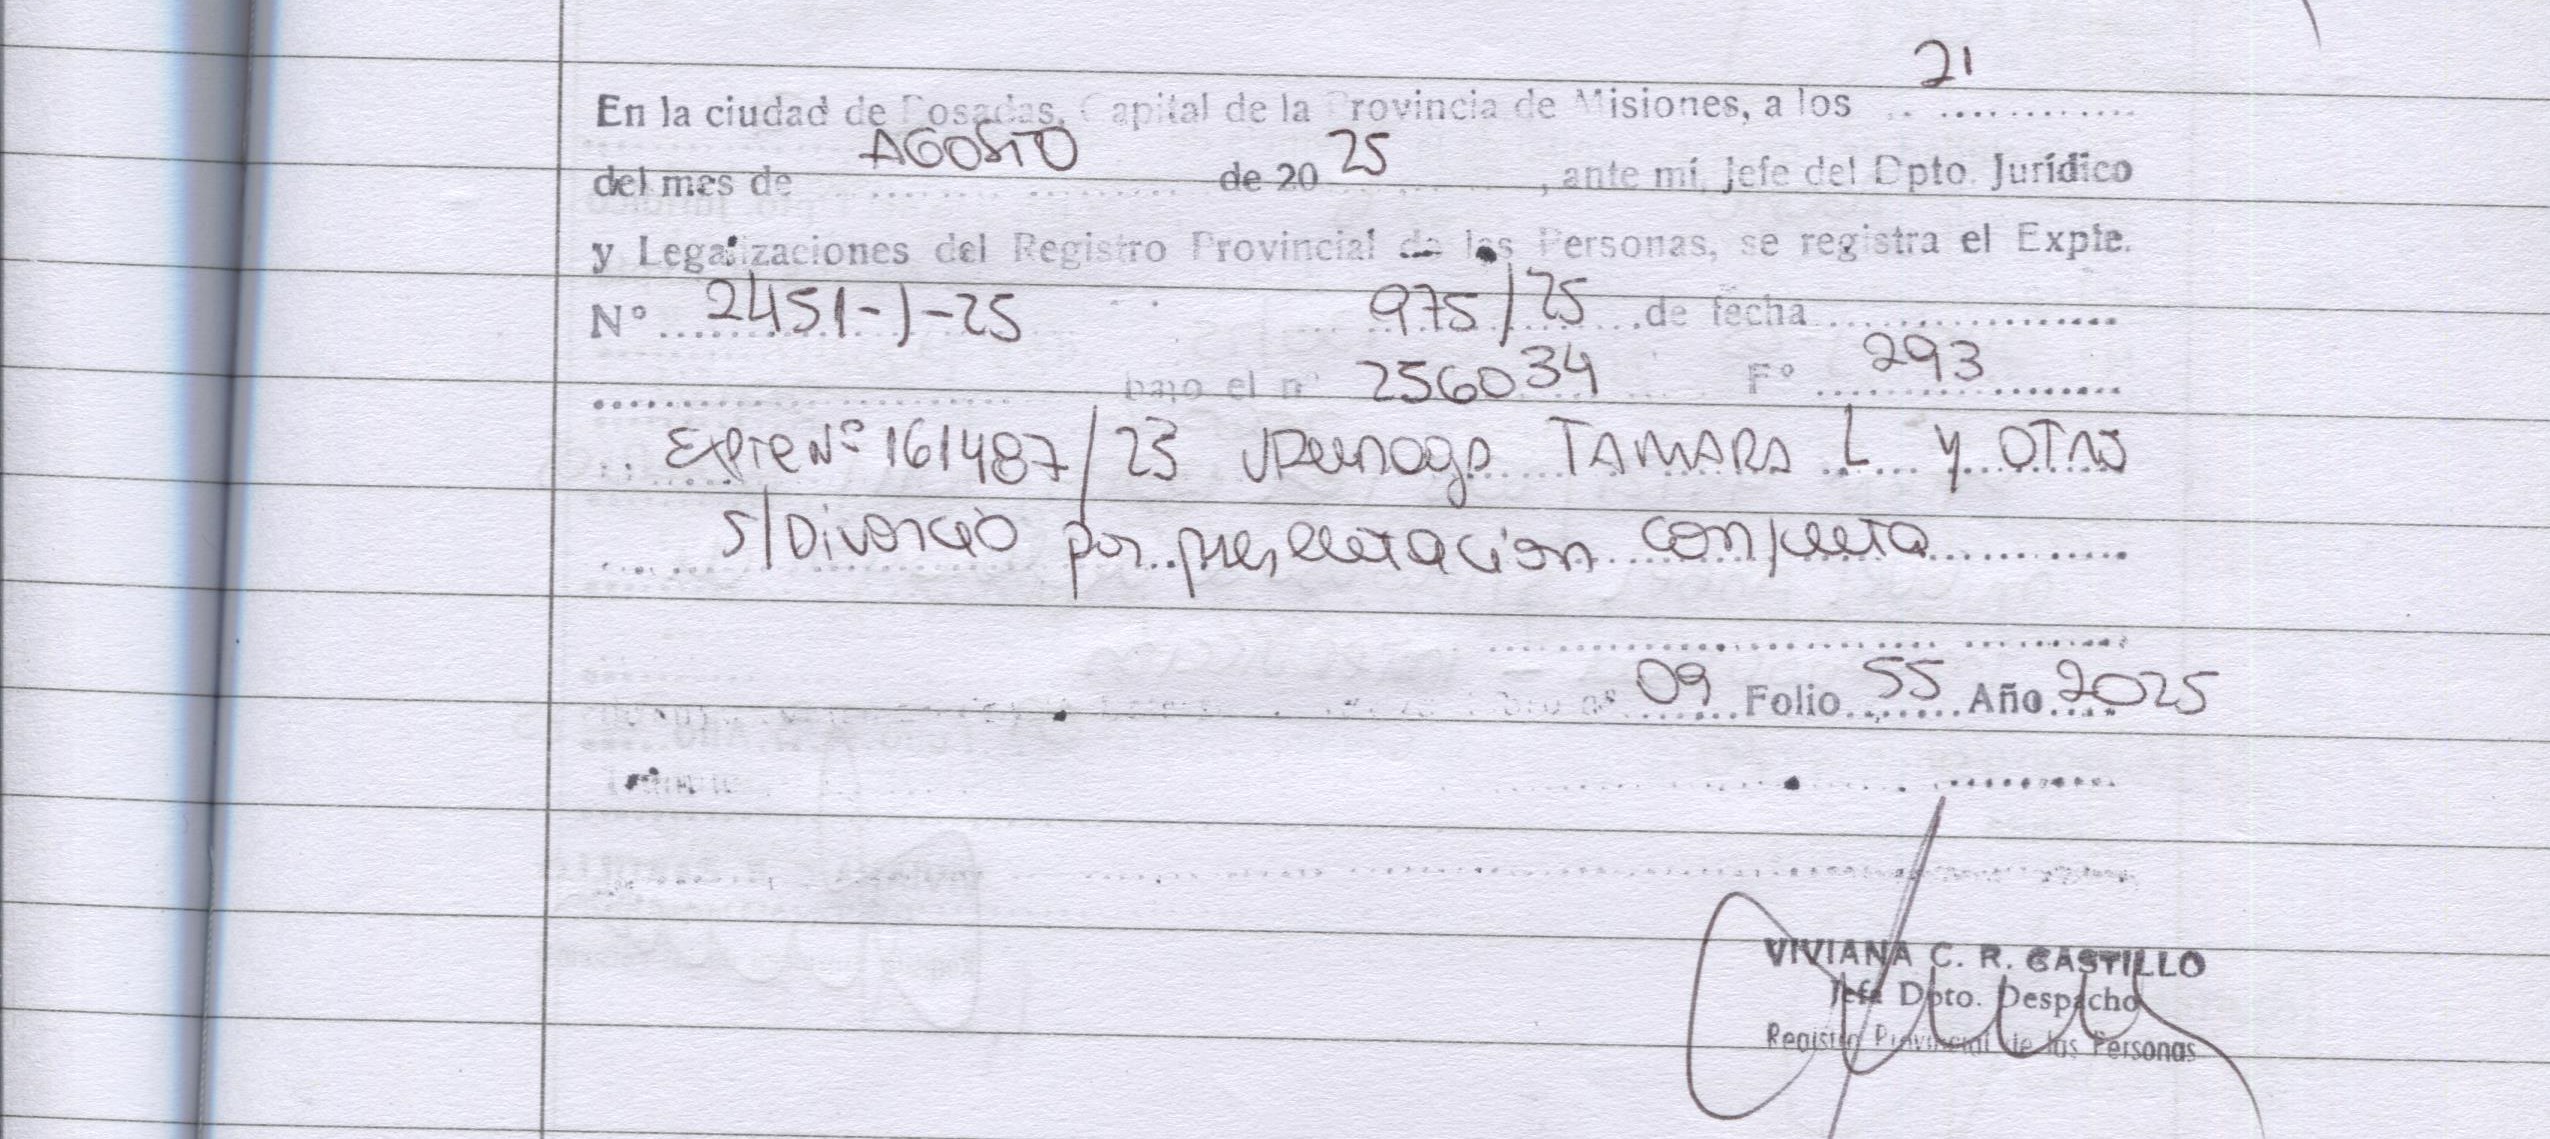 En la ciudad de Posadas, Capital de la Provincia de Misiones, a los 21
del mes de AGOSTO de 20 25, ante mí, Jefe del Dpto. Jurídico
y Legalizaciones del Registro Provincial de las Personas, se registra el Expte.
Nº 2451-J-25 975/25 de fecha
bajo el nº 256034 Fº 293
Expte Nº 161487/23 TAMARA L y OTRO
S/Divorcio por presentacion conjunta
09 Folio 55 Año 2025
VIVIANA C. R. CASTILLO
Jefa Dpto. Despacho
Registro Provincial de las Personas